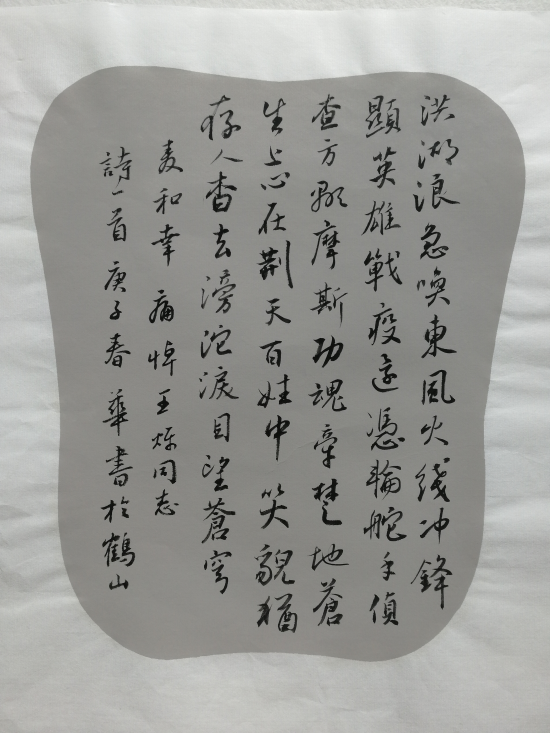 洪湖浪急喚東風火线冲鋒
顯英雄戰疫还憑輪舵手偵
查方顯摩斯功魂牽楚地蒼
生上心在荆天百姓中笑貌猶
存人杳去滂沱淚目望蒼穹
麦和幸痛悼王烁同志
詩一首庚子春華書於鶴山